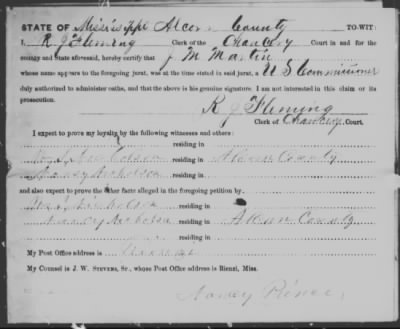 STATE OF Mississippi Alcorn County TO-WIT:
I, R J Fleming Clerk of the Chancery Court in and for the
county and State aforesaid, hereby certify that J M Martin
whose name appears to the foregoing jurat, was at the time stated in said jurat, a U S Commissioner
duly authorized to administer oaths, and the above is his genuine signature. I am not interested in this claim or its
prosecution.
R J Fleming
Clerk of Chancery Court.
I expect to prove my loyalty by the following witnesses and others:
residing in
Nicholson residing in Alcorn County
Nancy Nicholson residing in
and also expect to prove the other facts alleged in the foregoing petition by
Nicholson residing in
Nancy Nicholson residing in Alcorn County
residing in
My Post Office address is
My Counsel is J. W. STEVENS, Sr., whose Post Office address is Rienzi, Miss.
Nancy